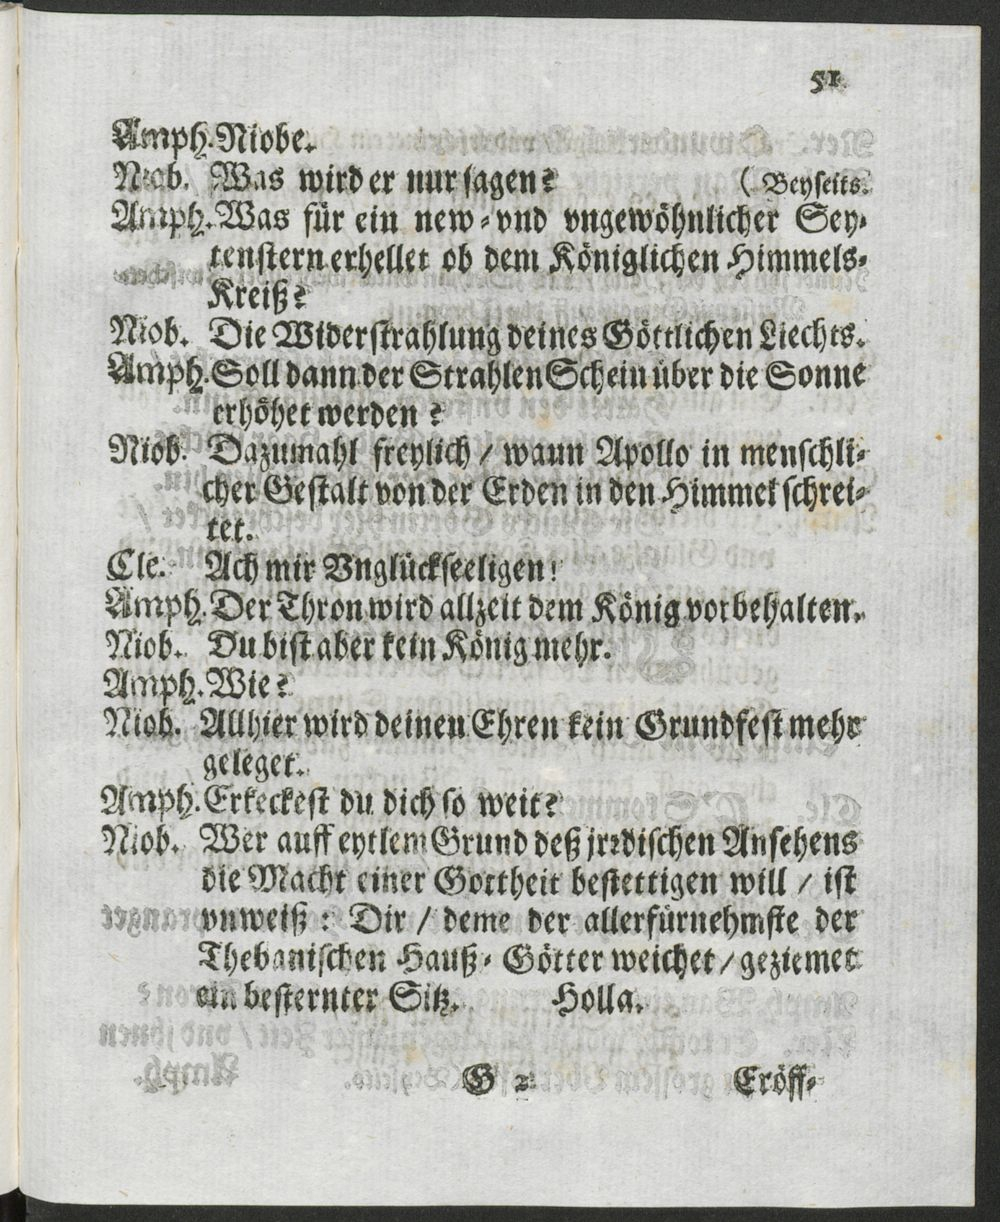 51.
Amph. Niobe.
Niob. Was wird er nur sagen? ( Beyseits.
Amph. Was für ein new- vnd vngewöhnlicher Sey-
tenstern erhellet ob dem Königlichen Himmels-
Kreiß?
Niob. Die Widerstrahlung deines Göttlichen Liechts.
Amph. Soll dann der Strahlen Schein über die Sonne
erhöhet werden?
Niob. Dazumahl freylich / wann Apollo in menschli-
cher Gestalt von der Erden in den Himmel schrei-
tet.
Cle. Ach mir Vnglückseeligen!
Amph. Der Thron wird allzeit dem König vorbehalten.
Niob. Du bist aber kein König mehr.
Amph. Wie?
Niob. Allhier wird deinen Ehren kein Grundfest mehr
geleget.
Amph. Erkeckest du dich so weit?
Niob. Wer auff eytlem Grund deß jrrdischen Ansehens
die Macht einer Gottheit bestettigen will / ist
vnweiß: Dir / deme der allerfürnehmste der
Thebanischen Hauß-Götter weichet / geziemet
ein besternter Sitz. Holla.
G 2 Eröff-